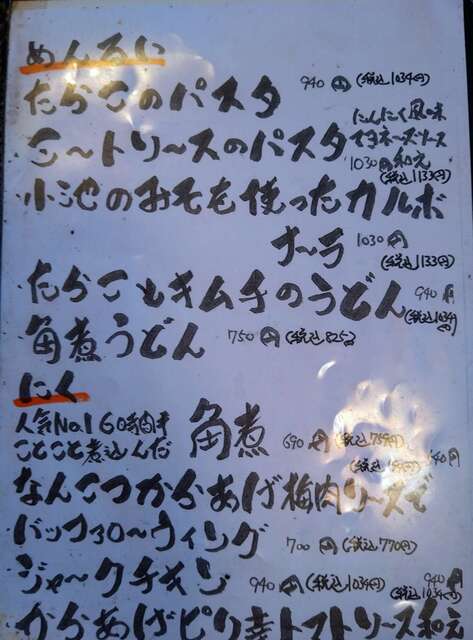 めんるい
たらこのパスタ 940円 (税込1034円)
こ〜トリ〜スのパスタ にんにく風味
マヨネーズソース
和え
1030円 (税込1133円)
小池のみそを使ったカルボ
ナ〜ラ 1030円 (税込1133円)
たらことキムチのうどん 940円
(税込1034円)
角煮うどん 750円 (税込825円)
にく
人気No.1 6時間半
ことこと煮込んだ 角煮 690円 (税込759円)
なんこつからあげ梅肉ソースで
バッファロ〜ウィング 700円 (税込770円)
ジャ〜クチキン 940円 (税込1034円)
940円
(税込1034円)
からあげピリ辛トマトソース和え